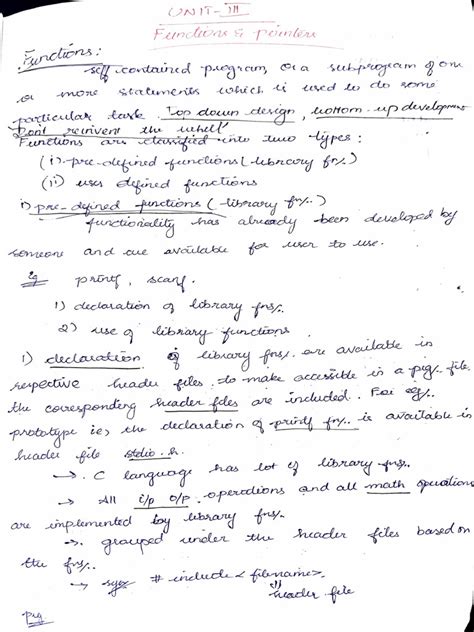 UNIT-III
Functions & pointers
Functions:
self contained program, or a subprogram of one
or more statements which is used to do some
particular task. Top down design, bottom-up development
Dont reinvent the wheel
Functions are classified into two types:
(i) pre-defined functions (library fn/.)
(ii) user defined functions
i) pre-defined functions (library fn/.)
functionality has already been developed by
someone and are available for user to use.
eg printf, scanf.
1) declaration of library fns/.
2) use of library functions
1) declaration of library fns/. are available in
respective header files. to make accessible in a prg/. file
the corresponding header files are included. For eg/.
prototype ie, the declaration of printf fn/.. is available in
header file stdio.h.
→. C language has lot of library fns/.
→ All i/p o/p. operations and all math operations
are implemented by library fns/.
→. grouped under the header files based on
the fns/.
→ syn # include < filename>.
header file
prg